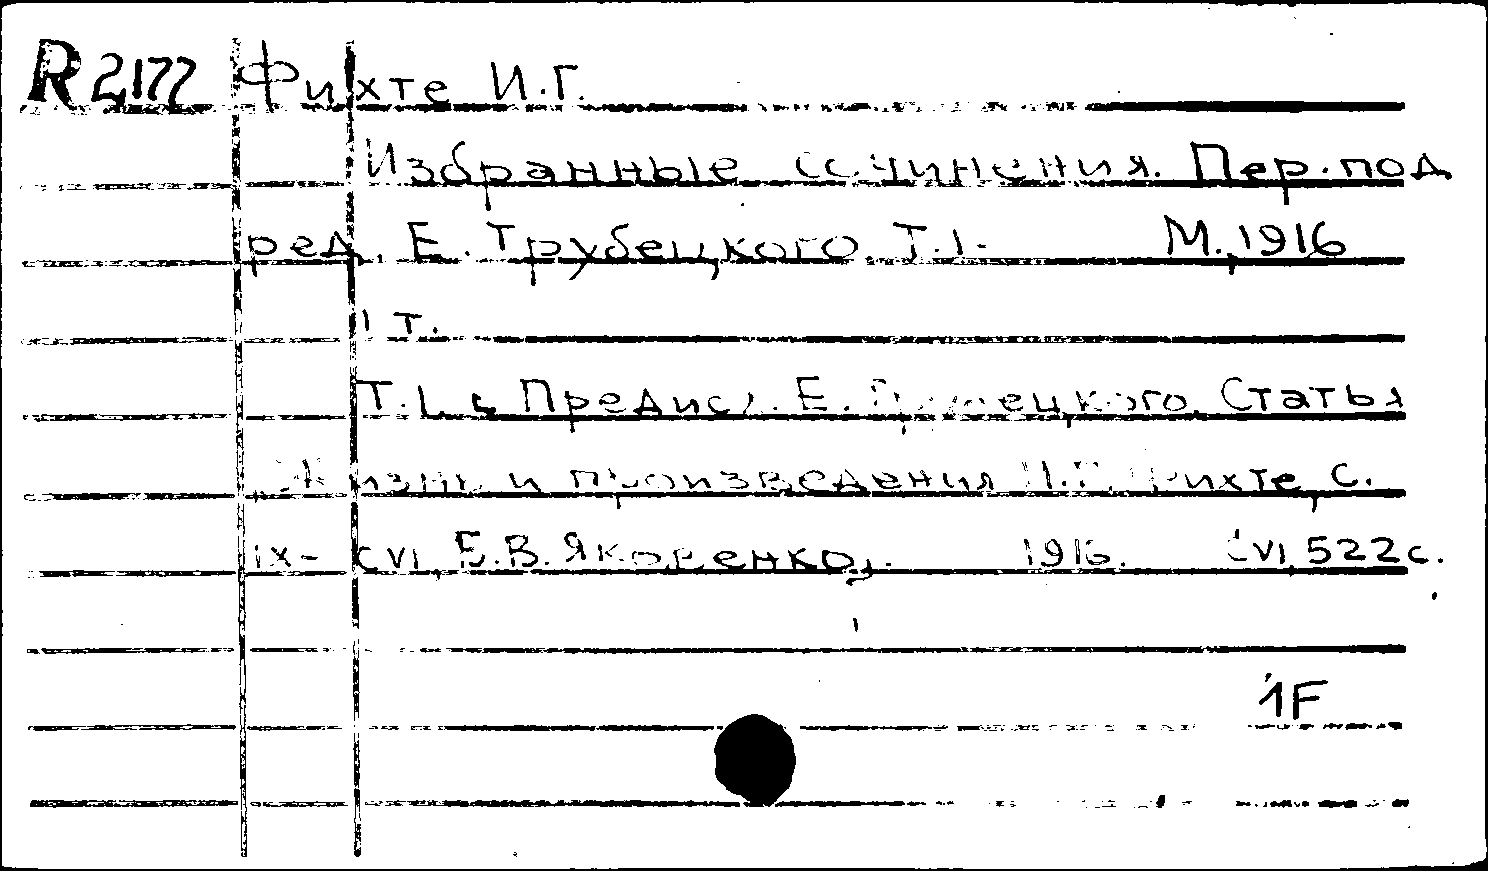 R 2177 Фихте И.Г.
Избранные сочинения. Пер. под
ред. Е. Трубецкого. Т.1. М., 1916
1 т.
Т.1. с Предисл. Е. Трубецкого. Статья
"Жизнь и произведения И.Г. Фихте, с.
IX- CVI, Б.В. Яковенко,. 1916. CVI, 522 с.
1F